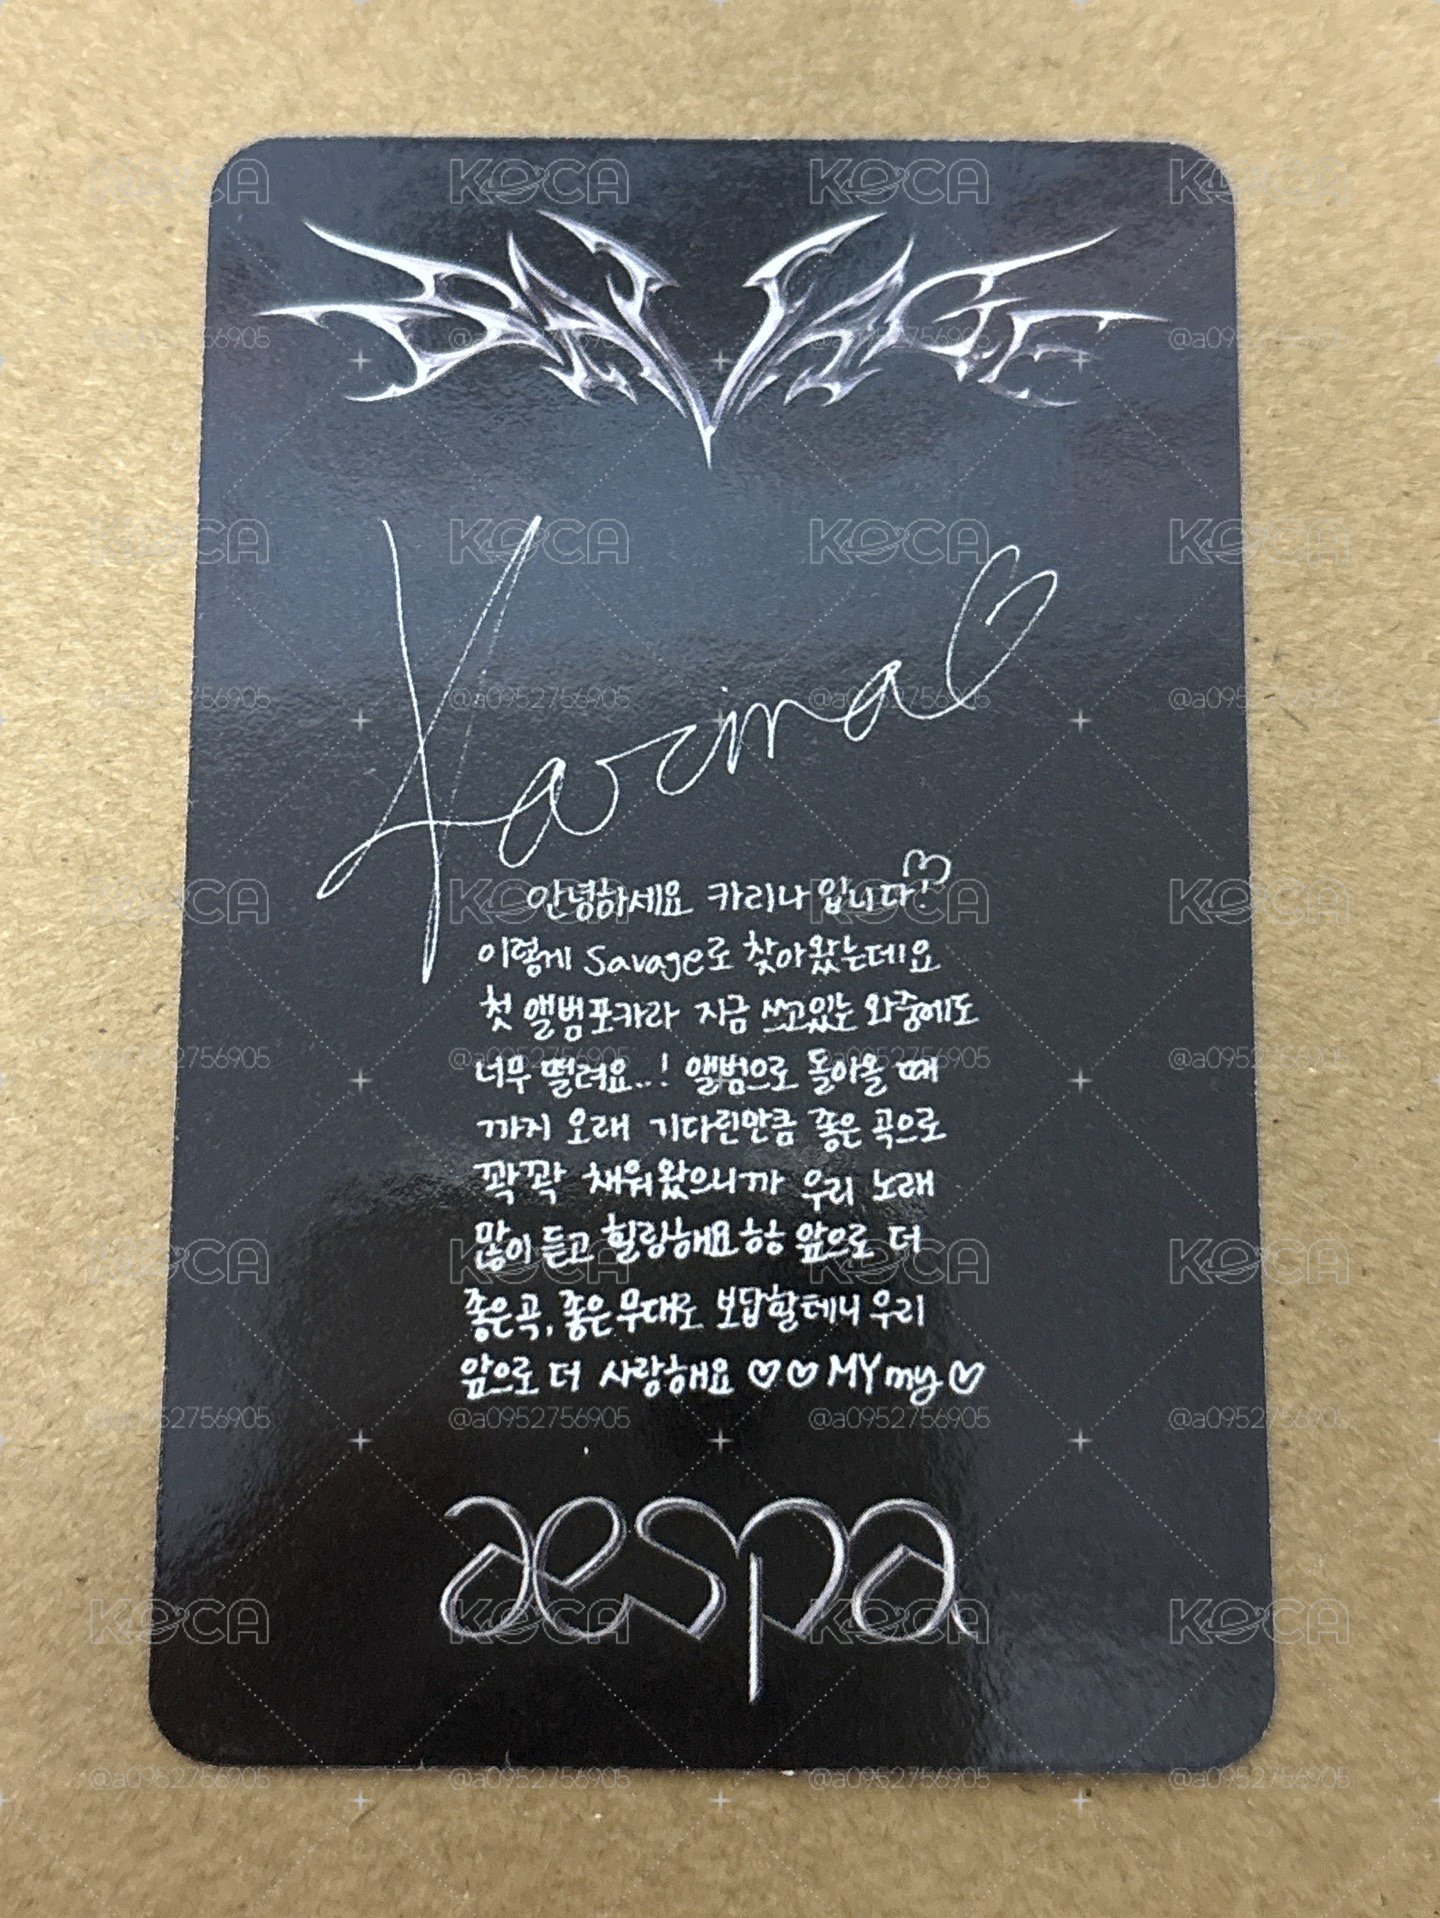 SAVAGE
Karina♡
안녕하세요 카리나입니다!♡
이렇게 Savage로 찾아왔는데요
첫 앨범포카라 지금 쓰고있는 와중에도
너무 떨려요..! 앨범으로 돌아올 때
까지 오래 기다린만큼 좋은 곡으로
꽉꽉 채워왔으니까 우리 노래
많이 듣고 힐링해요 ㅎㅎ 앞으로 더
좋은곡, 좋은무대로 보답할테니 우리
앞으로 더 사랑해요 ♡♡ MYmy♡
aespa
KOCA
@a0952756905